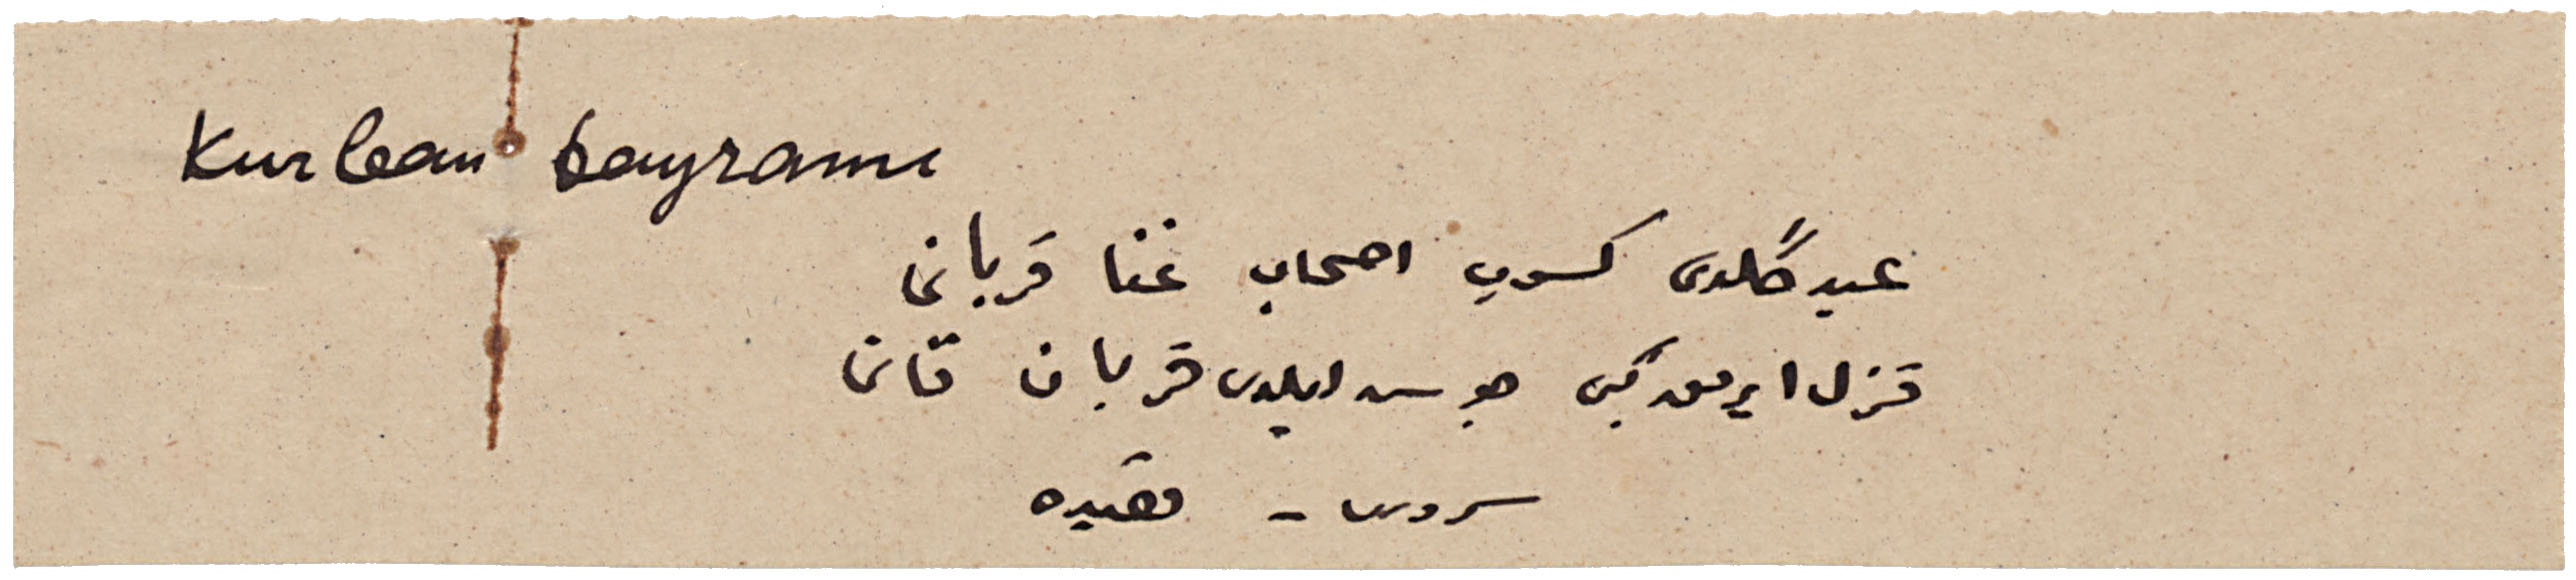 Kurban bayramı
عید گلدی کسوب اصحاب غنا قربانی
قزل ایرمق کبی جوش ایلدی قربان قانی
سروری - قصیده